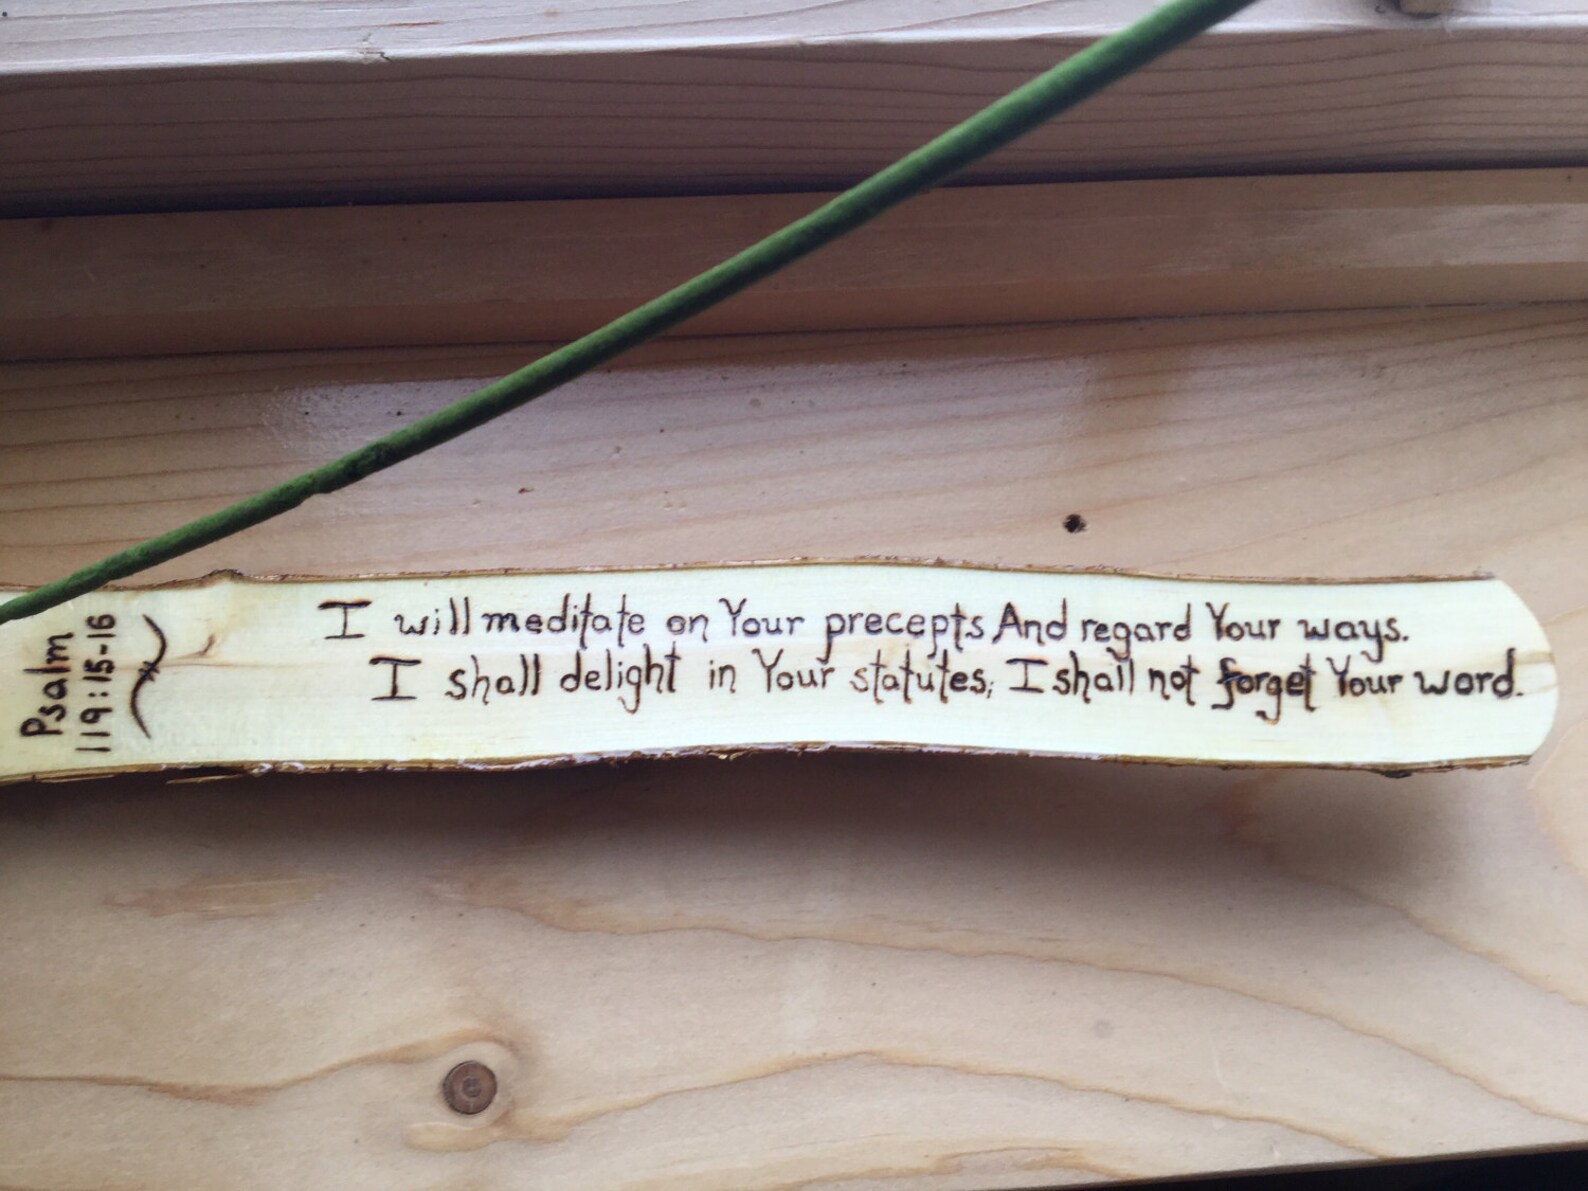 Psalm
119:15-16
I will meditate on Your precepts And regard Your ways.
I shall delight in Your statutes; I shall not forget Your word.